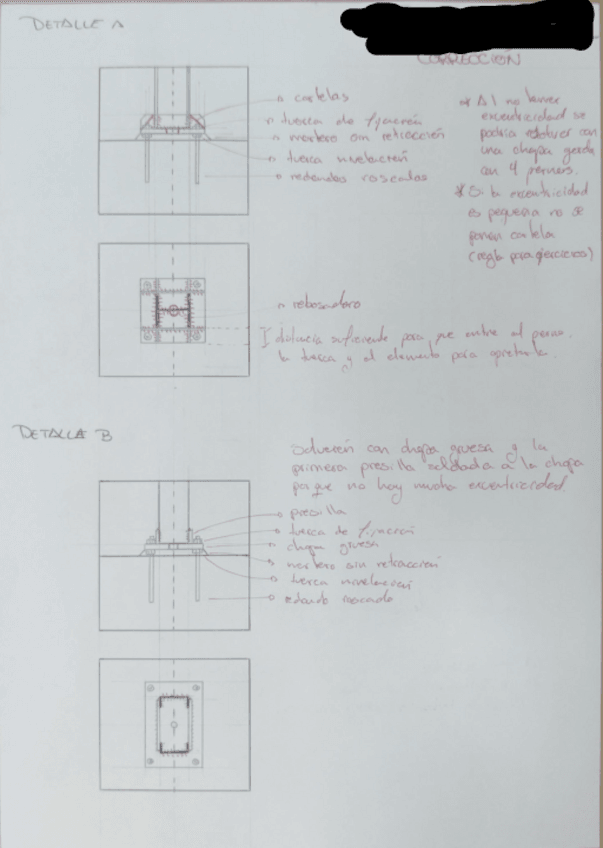 DETALLE A
CORRECCIÓN
cartelas
tuerca de fijación
mortero sin retracción
tuerca nivelación
redondos roscados
* Al no haber
excentricidad se
podría resolver con
una chapa gorda
con 4 pernos.
* Si la excentricidad
es pequeña no se
ponen cartela
(regla para ejercicios)
rebosadero
distancia suficiente para que entre el perno,
la tuerca y el elemento para apretarla.
DETALLA B
Solución con chapa gruesa y la
primera presilla soldada a la chapa
porque no hay mucha excentricidad
presilla
tuerca de fijación
chapa gruesa
mortero sin retracción
tuerca nivelación
redondo roscado